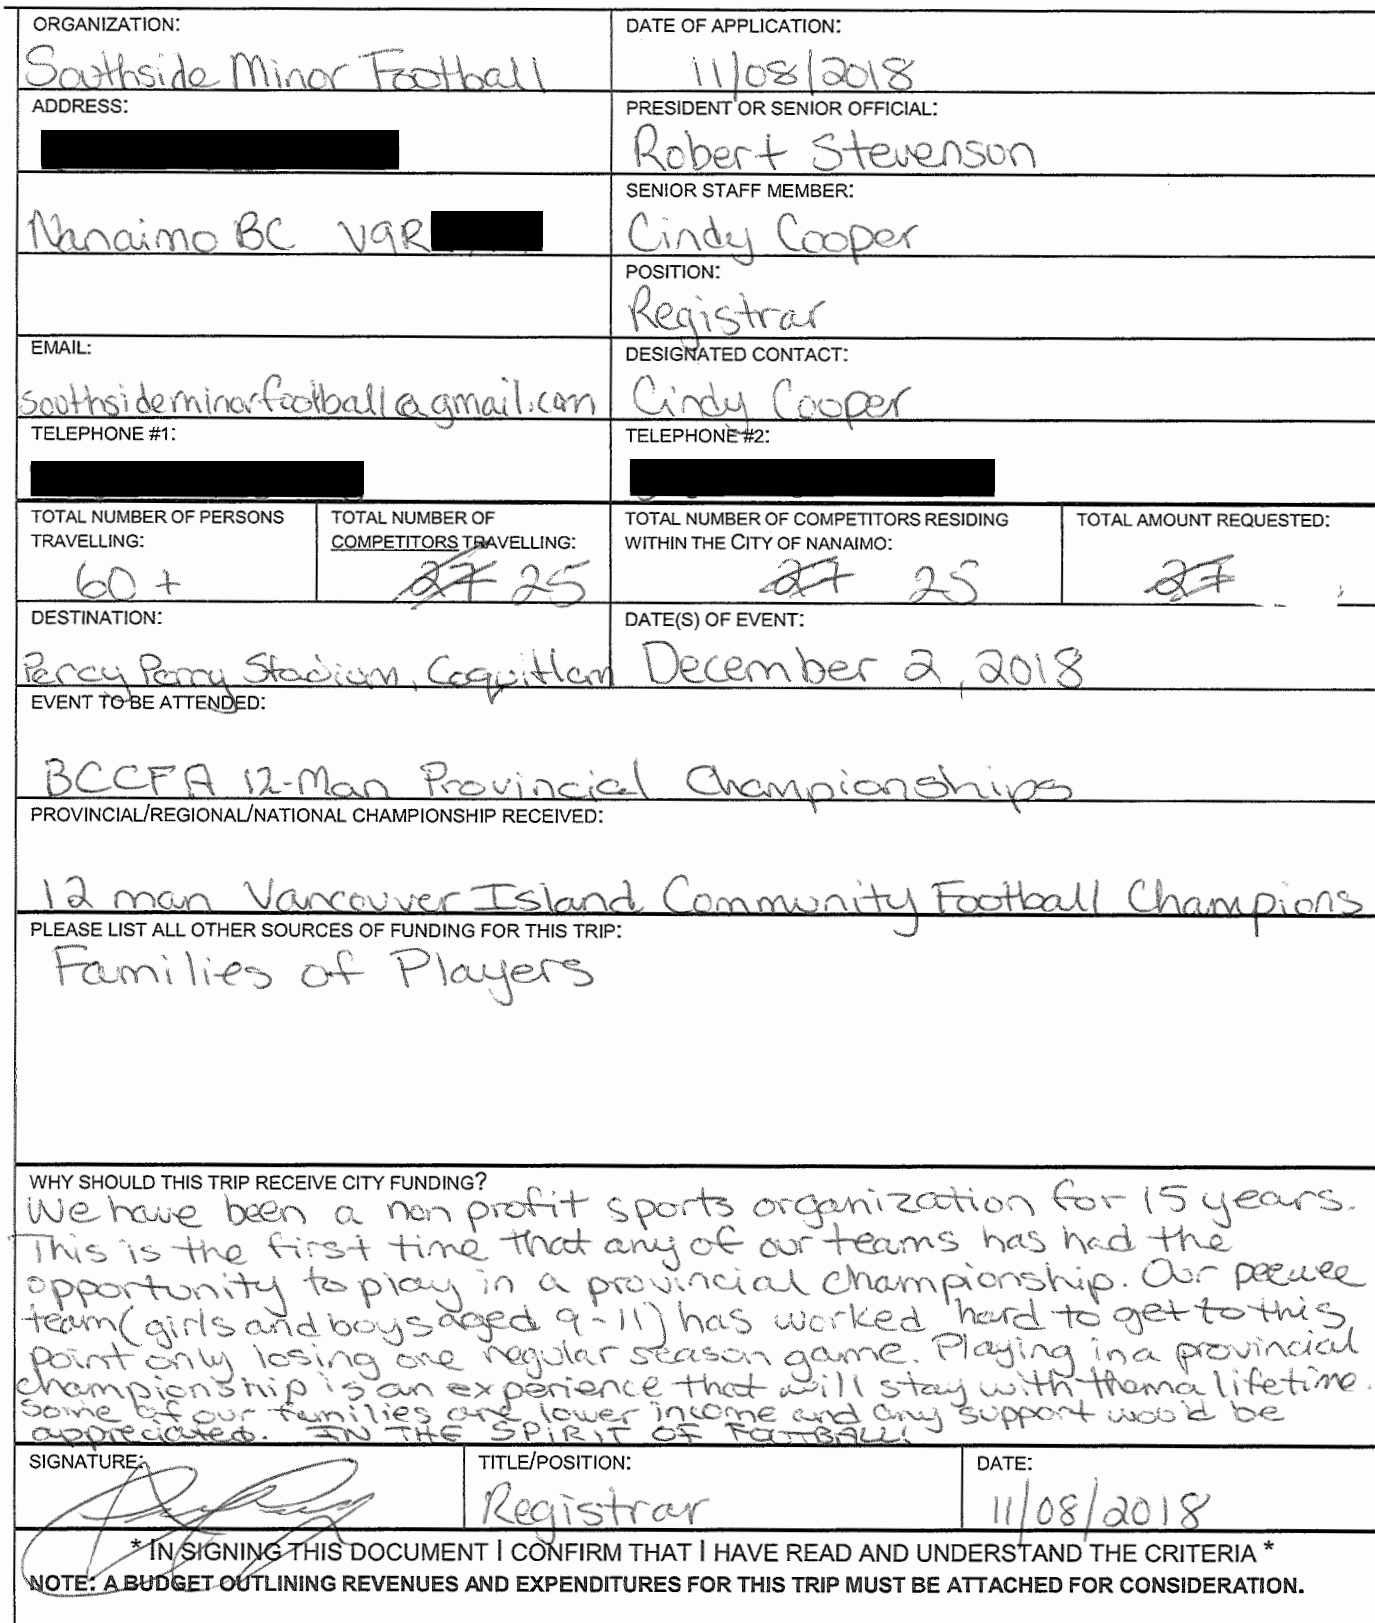 ORGANIZATION:
Southside Minor Football
DATE OF APPLICATION:
11/08/2018
ADDRESS:
PRESIDENT OR SENIOR OFFICIAL:
Robert Stevenson
Nanaimo BC V9R
SENIOR STAFF MEMBER:
Cindy Cooper
POSITION:
Registrar
EMAIL:
southsideminorfootball@gmail.com
DESIGNATED CONTACT:
Cindy Cooper
TELEPHONE #1:
TELEPHONE #2:
TOTAL NUMBER OF PERSONS
TRAVELLING:
60+
TOTAL NUMBER OF
COMPETITORS TRAVELLING:
27 25
TOTAL NUMBER OF COMPETITORS RESIDING
WITHIN THE CITY OF NANAIMO:
27 25
TOTAL AMOUNT REQUESTED:
27
DESTINATION:
Percy Perry Stadium, Coquitlam
DATE(S) OF EVENT:
December 2, 2018
EVENT TO BE ATTENDED:
BCCFA 12-Man Provincial Championships
PROVINCIAL/REGIONAL/NATIONAL CHAMPIONSHIP RECEIVED:
12 man Vancouver Island Community Football Champions
PLEASE LIST ALL OTHER SOURCES OF FUNDING FOR THIS TRIP:
Families of Players
WHY SHOULD THIS TRIP RECEIVE CITY FUNDING?
We have been a non profit sports organization for 15 years.
This is the first time that any of our teams has had the
opportunity to play in a provincial championship. Our peewee
team (girls and boys aged 9-11) has worked hard to get to this
point only losing one regular season game. Playing in a provincial
championship is an experience that will stay with them a lifetime.
Some of our families are lower income and any support would be
appreciated. IN THE SPIRIT OF FOOTBALL!
SIGNATURE:
TITLE/POSITION:
Registrar
DATE:
11/08/2018
* IN SIGNING THIS DOCUMENT I CONFIRM THAT I HAVE READ AND UNDERSTAND THE CRITERIA *
NOTE: A BUDGET OUTLINING REVENUES AND EXPENDITURES FOR THIS TRIP MUST BE ATTACHED FOR CONSIDERATION.